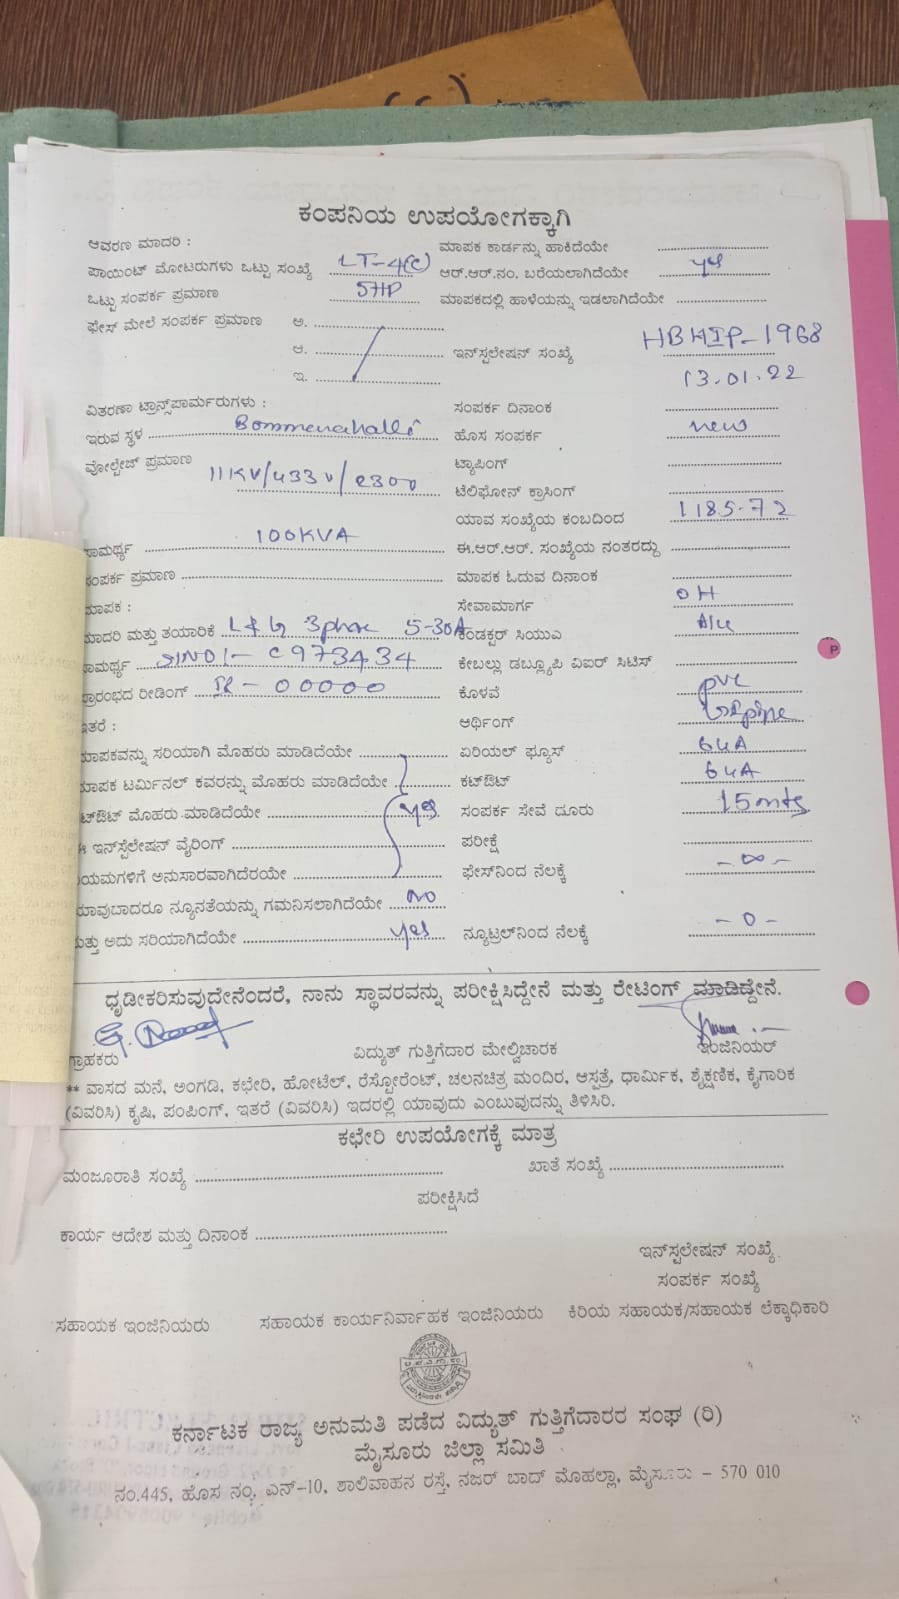 ಕಂಪನಿಯ ಉಪಯೋಗಕ್ಕಾಗಿ
ಆವರಣ ಮಾದರಿ : ಮಾಪಕ ಕಾರ್ಡನ್ನು ಹಾಕಿದೆಯೇ
ಪಾಯಿಂಟ್ ಮೋಟರುಗಳು ಒಟ್ಟು ಸಂಖ್ಯೆ LT-4(c) ಆರ್.ಆರ್.ನಂ. ಬರೆಯಲಾಗಿದೆಯೇ yes
ಒಟ್ಟು ಸಂಪರ್ಕ ಪ್ರಮಾಣ 5HP ಮಾಪಕದಲ್ಲಿ ಹಾಳೆಯನ್ನು ಇಡಲಾಗಿದೆಯೇ
ಫೇಸ್ ಮೇಲೆ ಸಂಪರ್ಕ ಪ್ರಮಾಣ ಅ.
ಆ. ಇನ್‌ಸ್ಟಲೇಷನ್ ಸಂಖ್ಯೆ HBHIP-1968
ಇ. 13.01.22
ವಿತರಣಾ ಟ್ರಾನ್ಸ್‌ಪಾರ್ಮರುಗಳು : ಸಂಪರ್ಕ ದಿನಾಂಕ
ಇರುವ ಸ್ಥಳ Bommenahalli ಹೊಸ ಸಂಪರ್ಕ new
ವೋಲ್ಟೇಜ್ ಪ್ರಮಾಣ ಟ್ಯಾಪಿಂಗ್
11KV/433V/ ಟೆಲಿಫೋನ್ ಕ್ರಾಸಿಂಗ್
ಯಾವ ಸಂಖ್ಯೆಯ ಕಂಬದಿಂದ 1185-72
ಸಾಮರ್ಥ್ಯ 100KVA ಈ.ಆರ್.ಆರ್. ಸಂಖ್ಯೆಯ ನಂತರದ್ದು
ಸಂಪರ್ಕ ಪ್ರಮಾಣ ಮಾಪಕ ಓದುವ ದಿನಾಂಕ
ಮಾಪಕ : ಸೇವಾಮಾರ್ಗ OH
ಮಾದರಿ ಮತ್ತು ತಯಾರಿಕೆ L&G 3phase 5-30A ಕಂಡಕ್ಟರ್ ಸಿಯುಎ
ಸಾಮರ್ಥ್ಯ SlNO:- C973434 ಕೇಬಲ್ಲು ಡಬ್ಲ್ಯೂಪಿ ವಿಐರ್ ಸಿಟಿಸ್
ಪ್ರಾರಂಭದ ರೀಡಿಂಗ್ IR - 00000 ಕೊಳವೆ pvc
ಇತರೆ : ಆರ್ಥಿಂಗ್
ಮಾಪಕವನ್ನು ಸರಿಯಾಗಿ ಮೊಹರು ಮಾಡಿದೆಯೇ ಏರಿಯಲ್ ಫ್ಯೂಸ್ 64A
ಮಾಪಕ ಟರ್ಮಿನಲ್ ಕವರನ್ನು ಮೊಹರು ಮಾಡಿದೆಯೇ ಕಟ್‌ಔಟ್ 64A
ಕಟ್‌ಔಟ್ ಮೊಹರು ಮಾಡಿದೆಯೇ yes ಸಂಪರ್ಕ ಸೇವೆ ದೂರು 15mts
ಈ ಇನ್‌ಸ್ಟಲೇಷನ್ ವೈರಿಂಗ್ ಪರೀಕ್ಷೆ
ನಿಯಮಗಳಿಗೆ ಅನುಸಾರವಾಗಿದೆರಯೇ ಫೇಸ್‌ನಿಂದ ನೆಲಕ್ಕೆ - ∞ -
ಯಾವುಬಾದರೂ ನ್ಯೂನತೆಯನ್ನು ಗಮನಿಸಲಾಗಿದೆಯೇ no
ಮತ್ತು ಅದು ಸರಿಯಾಗಿದೆಯೇ yes ನ್ಯೂಟ್ರಲ್‌ನಿಂದ ನೆಲಕ್ಕೆ - 0 -
ಧೃಡೀಕರಿಸುವುದೇನೆಂದರೆ, ನಾನು ಸ್ಥಾವರವನ್ನು ಪರೀಕ್ಷಿಸಿದ್ದೇನೆ ಮತ್ತು ರೇಟಿಂಗ್ ಮಾಡಿದ್ದೇನೆ.
ಗ್ರಾಹಕರು ವಿದ್ಯುತ್ ಗುತ್ತಿಗೆದಾರ ಮೇಲ್ವಿಚಾರಕ ಇಂಜಿನಿಯರ್
** ವಾಸದ ಮನೆ, ಅಂಗಡಿ, ಕಛೇರಿ, ಹೋಟೆಲ್, ರೆಸ್ಟೋರೆಂಟ್, ಚಲನಚಿತ್ರ ಮಂದಿರ, ಆಸ್ಪತ್ರೆ, ಧಾರ್ಮಿಕ, ಶೈಕ್ಷಣಿಕ, ಕೈಗಾರಿಕ
(ವಿವರಿಸಿ) ಕೃಷಿ, ಪಂಪಿಂಗ್, ಇತರೆ (ವಿವರಿಸಿ) ಇದರಲ್ಲಿ ಯಾವುದು ಎಂಬುವುದನ್ನು ತಿಳಿಸಿರಿ.
ಕಛೇರಿ ಉಪಯೋಗಕ್ಕೆ ಮಾತ್ರ
ಮಂಜೂರಾತಿ ಸಂಖ್ಯೆ ಖಾತೆ ಸಂಖ್ಯೆ
ಪರೀಕ್ಷಿಸಿದೆ
ಕಾರ್ಯ ಆದೇಶ ಮತ್ತು ದಿನಾಂಕ
ಇನ್‌ಸ್ಟಲೇಷನ್ ಸಂಖ್ಯೆ
ಸಂಪರ್ಕ ಸಂಖ್ಯೆ
ಸಹಾಯಕ ಇಂಜಿನಿಯರು ಸಹಾಯಕ ಕಾರ್ಯನಿರ್ವಾಹಕ ಇಂಜಿನಿಯರು ಕಿರಿಯ ಸಹಾಯಕ/ಸಹಾಯಕ ಲೆಕ್ಕಾಧಿಕಾರಿ
ಕರ್ನಾಟಕ ರಾಜ್ಯ ಅನುಮತಿ ಪಡೆದ ವಿದ್ಯುತ್ ಗುತ್ತಿಗೆದಾರರ ಸಂಘ (ರಿ)
ಮೈಸೂರು ಜಿಲ್ಲಾ ಸಮಿತಿ
ನಂ.445, ಹೊಸ ನಂ. ಎನ್-10, ಶಾಲಿವಾಹನ ರಸ್ತೆ, ನಜರ್ ಬಾದ್ ಮೊಹಲ್ಲಾ, ಮೈಸೂರು - 570 010